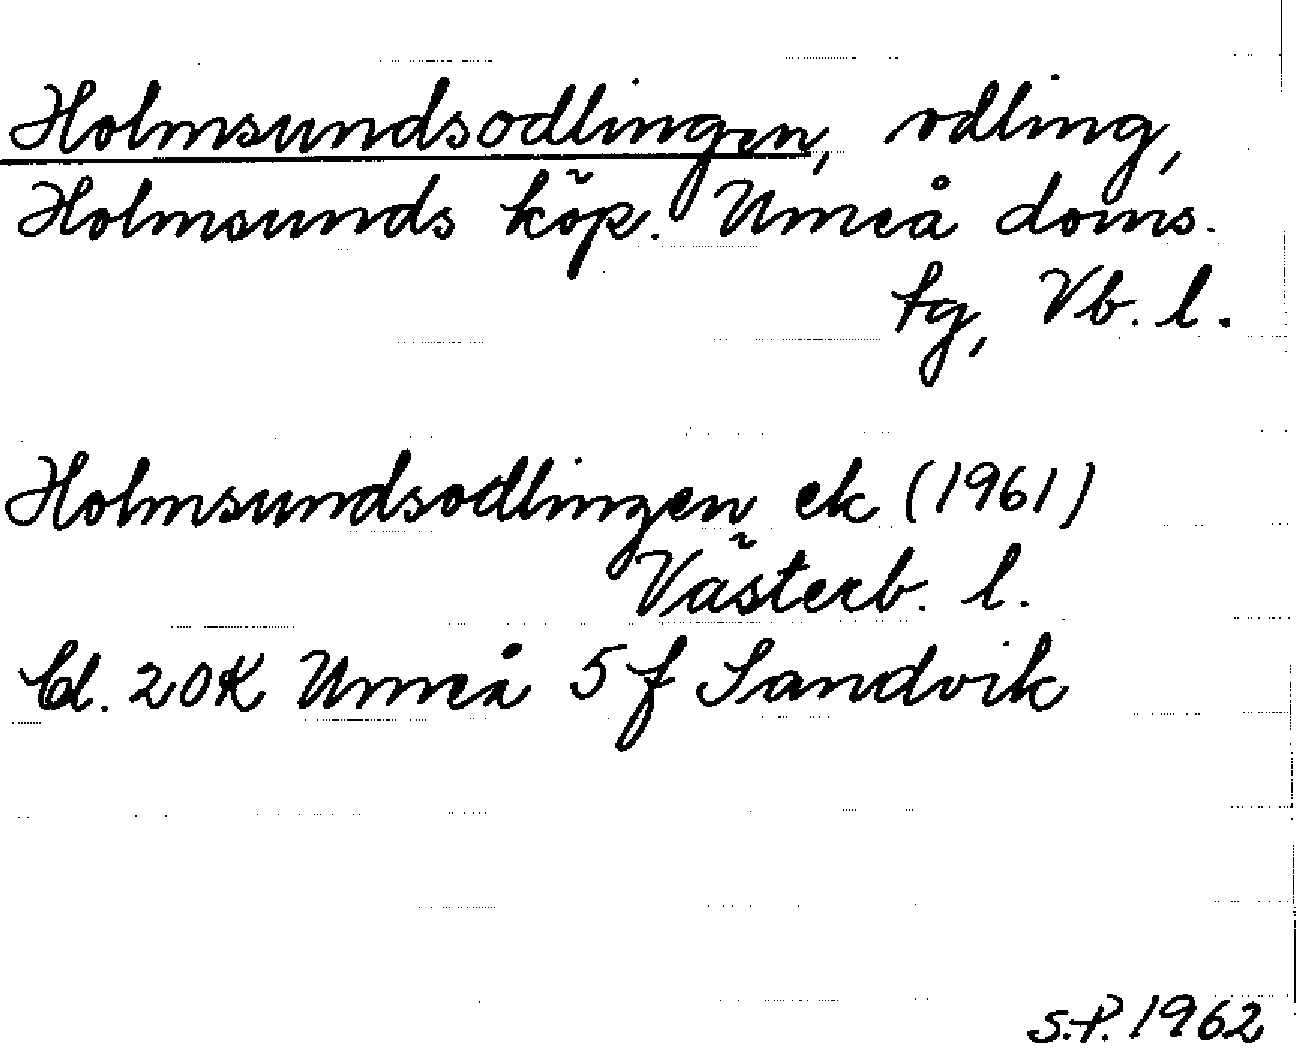 Holmsundsodlingen, odling,
Holmsunds köp. Umeå doms.
tg, Vb. l.
Holmsundsodlingen ek (1961)
Västerb. l.
bl. 20K Umeå 5 f Sandvik
S.P. 1962